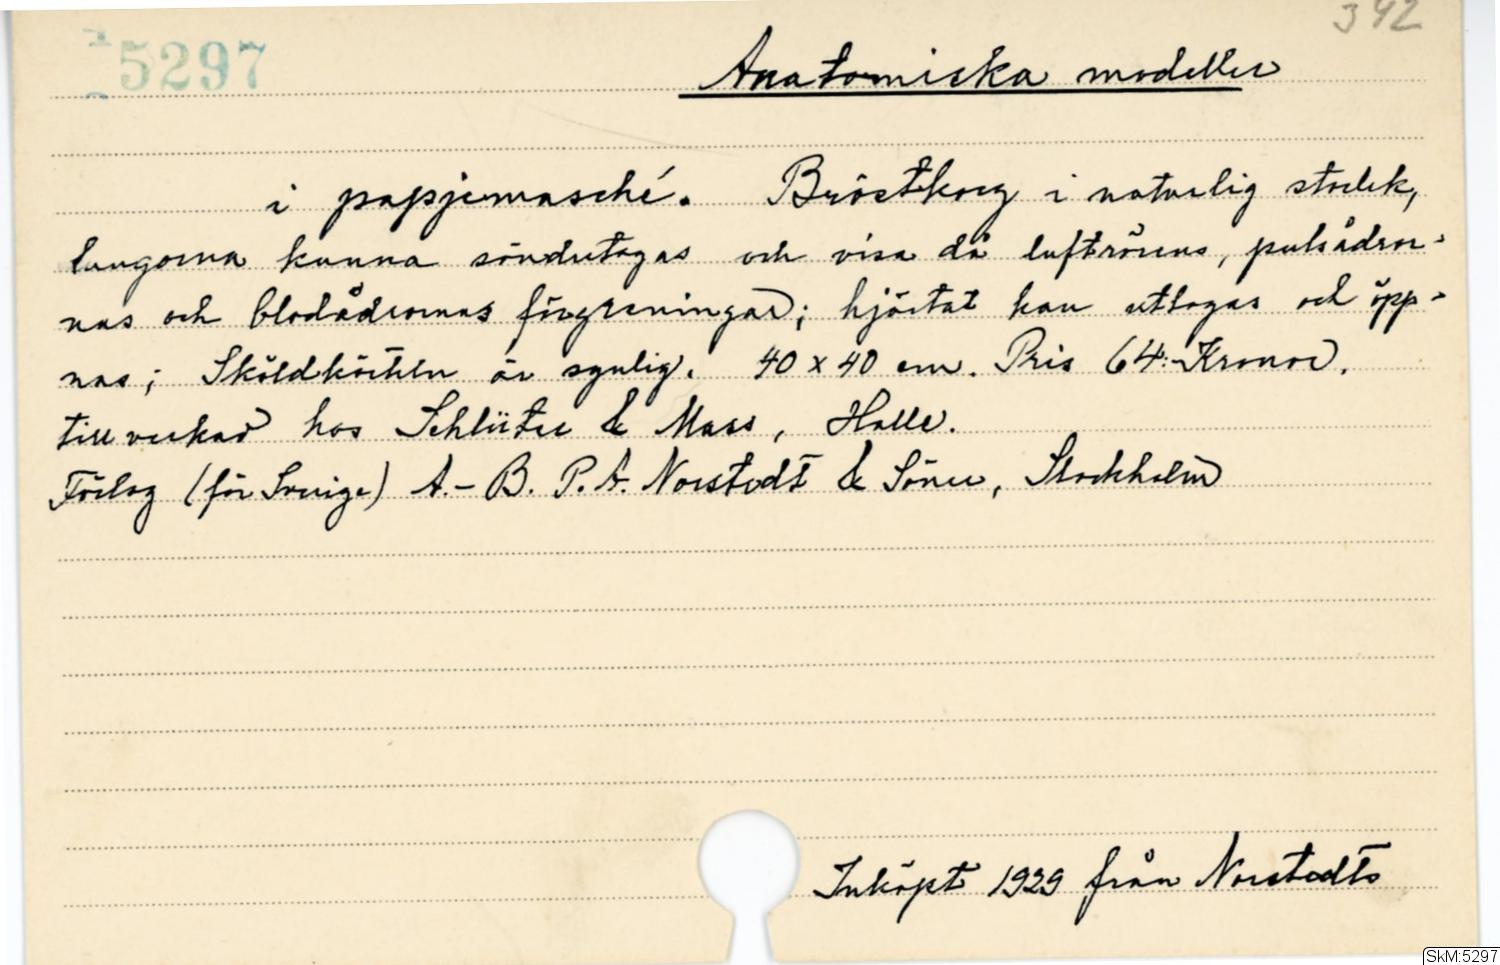 342
5297
Anatomiska modeller
i papjemasché. Bröstkorg i naturlig storlek,
lungorna kunna söndertagas och visa då luftrörens, pulsådror-
nas och blodådrornas förgreningar; hjärtat kan uttagas och öpp-
nas; Sköldkörteln är synlig. 40 x 40 cm. Pris 64:- Kronor.
tillverkad hos Schlüter & Mass, Halle.
Förlag (för Sverige) A.-B. P.A. Norstedt & Söner, Stockholm
Inköpt 1929 från Norstedts
SkM:5297